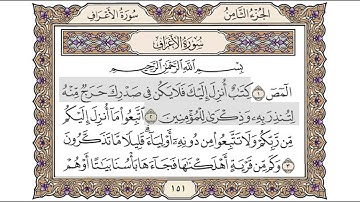 الجزء الثامن
سورة الأعراف
سورة الأعراف
بسم الله الرحمن الرحيم
المٓصٓ ١ كِتَٰبٌ أُنزِلَ إِلَيْكَ فَلَا يَكُن فِى صَدْرِكَ حَرَجٌ مِّنْهُ
لِتُنذِرَ بِهِۦ وَذِكْرَىٰ لِلْمُؤْمِنِينَ ٢ ٱتَّبِعُوا۟ مَآ أُنزِلَ إِلَيْكُم
مِّن رَّبِّكُمْ وَلَا تَتَّبِعُوا۟ مِن دُونِهِۦٓ أَوْلِيَآءَ قَلِيلًا مَّا تَذَكَّرُونَ
٣ وَكَم مِّن قَرْيَةٍ أَهْلَكْنَٰهَا فَجَآءَهَا بَأْسُنَا بَيَٰتًا أَوْ هُمْ
١٥١